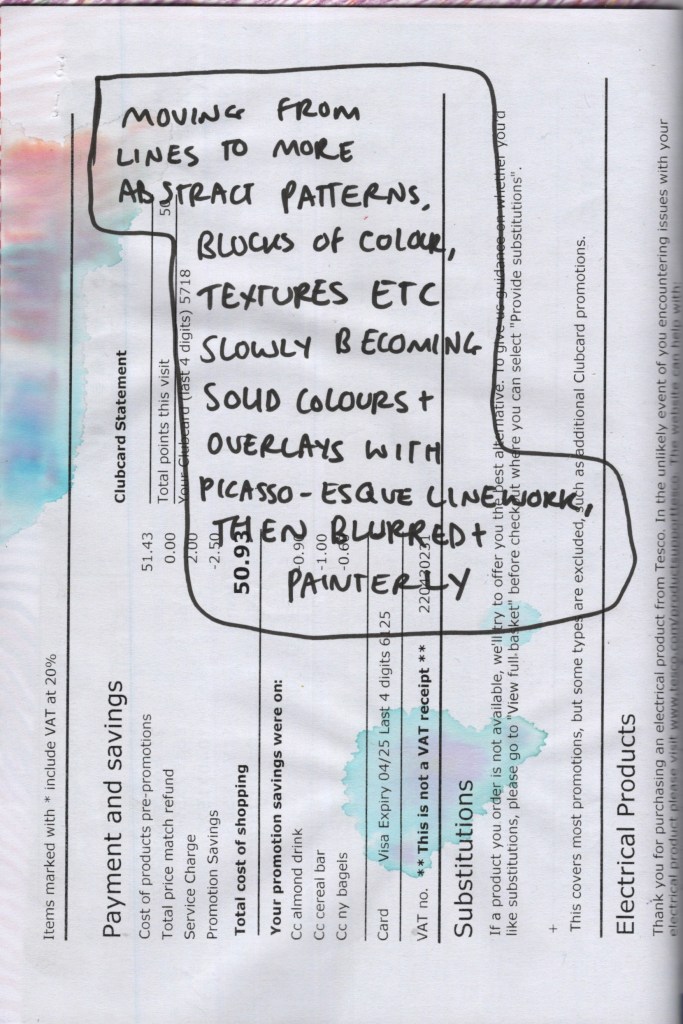 MOVING FROM
LINES TO MORE
ABSTRACT PATTERNS,
BLOCKS OF COLOUR,
TEXTURES ETC
SLOWLY BECOMING
SOLID COLOURS +
OVERLAYS WITH
PICASSO-ESQUE LINEWORK,
THEN BLURRED +
PAINTERLY
Items marked with * include VAT at 20%
Payment and savings
Cost of products pre-promotions 51.43
Total price match refund 0.00
Service Charge 2.00
Promotion Savings -2.50
Total cost of shopping 50.93
Clubcard Statement
Total points this visit
Your Clubcard (last 4 digits) 5718
Your promotion savings were on:
Cc almond drink -0.90
Cc cereal bar -1.00
Cc ny bagels
Card Visa Expiry 04/25 Last 4 digits 6125
VAT no. 220430231
** This is not a VAT receipt **
Substitutions
If a product you order is not available, we'll try to offer you the best alternative. To give us guidance on whether you'd
like substitutions, please go to "View full basket" before checkout where you can select "Provide substitutions".
+
This covers most promotions, but some types are excluded, such as additional Clubcard promotions.
Electrical Products
Thank you for purchasing an electrical product from Tesco. In the unlikely event of you encountering issues with your
electrical product please visit www.tesco.com/productsupporttesco. The website can help with: